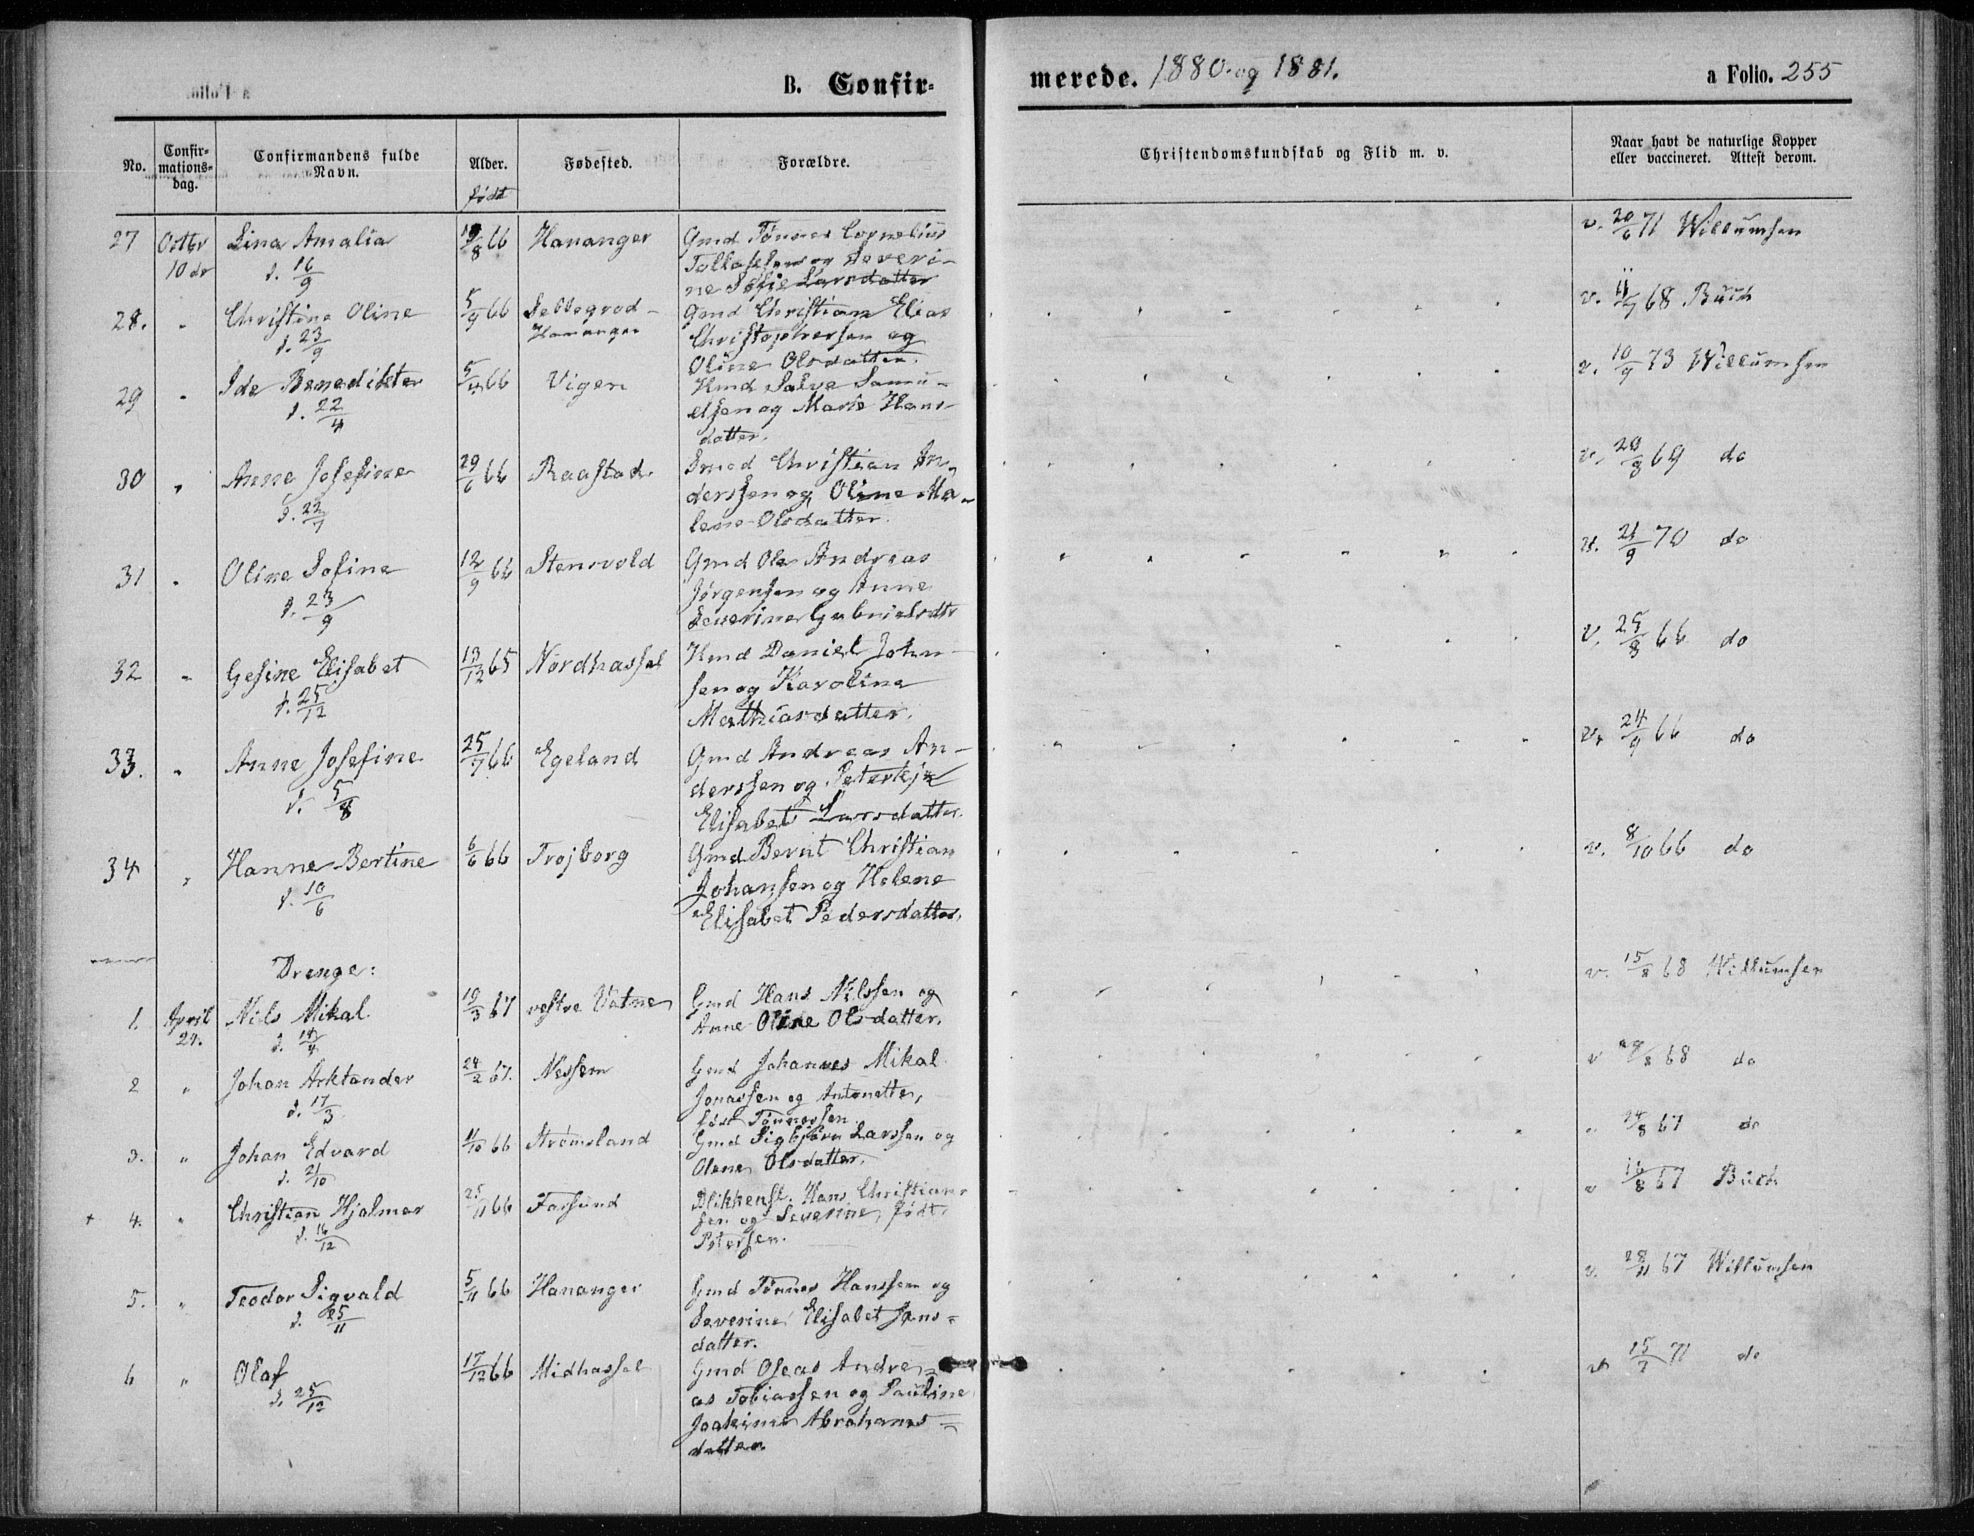 B. Confir-
merede. 1880 og 1881.
a Folio. 255
No.
Confir-
mations-
dag.
Confirmandens fulde
Navn.
Alder.
født
Fødested.
Forældre.
Christendomskundskab og Flid m. v.
Naar havt de naturlige Kopper
eller vaccineret. Attest derom.
27 Octbr Lina Amalia 66 Hananger Gmd Tønnes Cornelius v. 20/6 71 Willumsen
10 de d. 16/9 og Severi-
ne Sofie Larsdatter
28. " Christine Oline 5/9 66 Gmd Christian Elias v. 68 Buch
d. 23/9 Hananger Christophersen og
Oline Olsdatter.
29 " Ide Benedikte 66 Vigen Kmd Salve Samu- v. 10/9 73 Willumsen
d. 22/4 elsen og Marie Hans-
datter.
30 " Anne Josefine 29/6 66 Raastad Smed Christian An- v. 69 do
d. 22/7 derssen og Oline Ma-
lene Olsdatter.
31 " Oline Sofine 12/9 66 Stensvold Gmd Ole Andreas v. 21/9 70 do
d. 23/9 Jørgensen og Anne
Severine Gabrielsdtr
32 " Gesine Elisabet 13/12 65 Nordhassel Kmd Daniel John- v. 25/8 66 do
d. 25/12 sen og Karoline
Mathiasdatter.
33. " Anne Josefine 25/7 66 Egeland Gmd Andreas An- v. 24/9 66 do
d. 5/8 derssen og
Elisabet Larsdatter.
34 " Hanne Bertine 6/6 66 Trojborg Gmd Bernt Christian v. 8/10 66 do
d. 10/6 Johansen og Helene
Elisabet Pedersdatter.
Drenge:
1. April Nils Mikal 19/3 67 vestre Vatne Gmd Hans Nilssen og v. 15/8 68 Willumsen
24. d. 14/4 Anne Oline Olsdatter.
2 " Johan Arktander 24/2 67. Nessem Gmd Johannes Mikal v 68 do
d. 17/3 Jonassen og Antonette,
født Tønnessen
3. " Johan Edvard 66 Strømsland Gmd Sigbjørn Larssen og " 24/8 67 do
d. 21/10 Olene Olsdatter.
+ 4. " Christian Hjalmar 25/11 66 Farsund Blikkensl. Hans Christian- v 16/8 67 Buch
d. 16/12 sen og Severine, født
Petersen.
5. " Teodor Sigvald 5/11 66 Hananger Gmd Tønnes Hanssen og v. 28/11 67 Willumsen
d. 25/11 Severine Elisabet Jans-
datter.
6 " Olaf 17/12 66 Midhassel Gmd Oseas Andre- v 71 do
d. 25/12 as Tobiassen og Pauline
Joakime Abrahams-
datter.